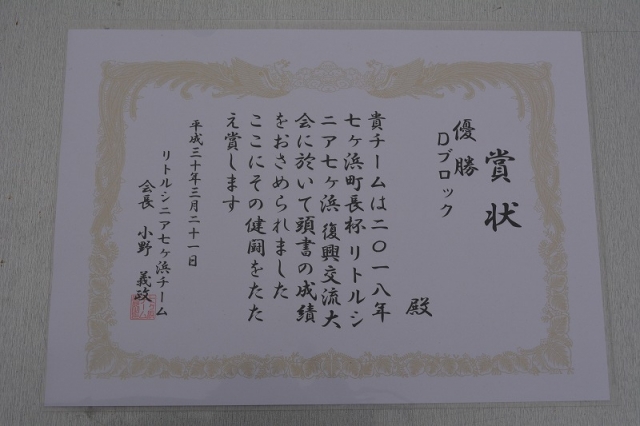 賞状
優勝
Dブロック
殿
貴チームは二〇一八年
七ヶ浜町長杯リトルシ
ニア七ヶ浜復興交流大
会に於いて頭書の成績
をおさめられました
ここにその健闘をたた
え賞します
平成三十年三月二十一日
リトルシニア七ヶ浜チーム
会長 小野 義政